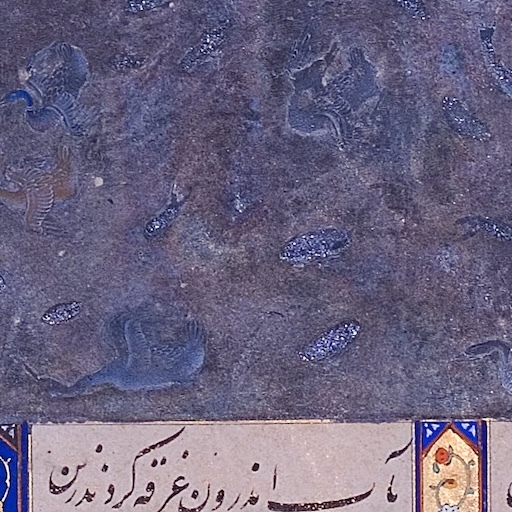 تاب اندرون غرقه کردند زین